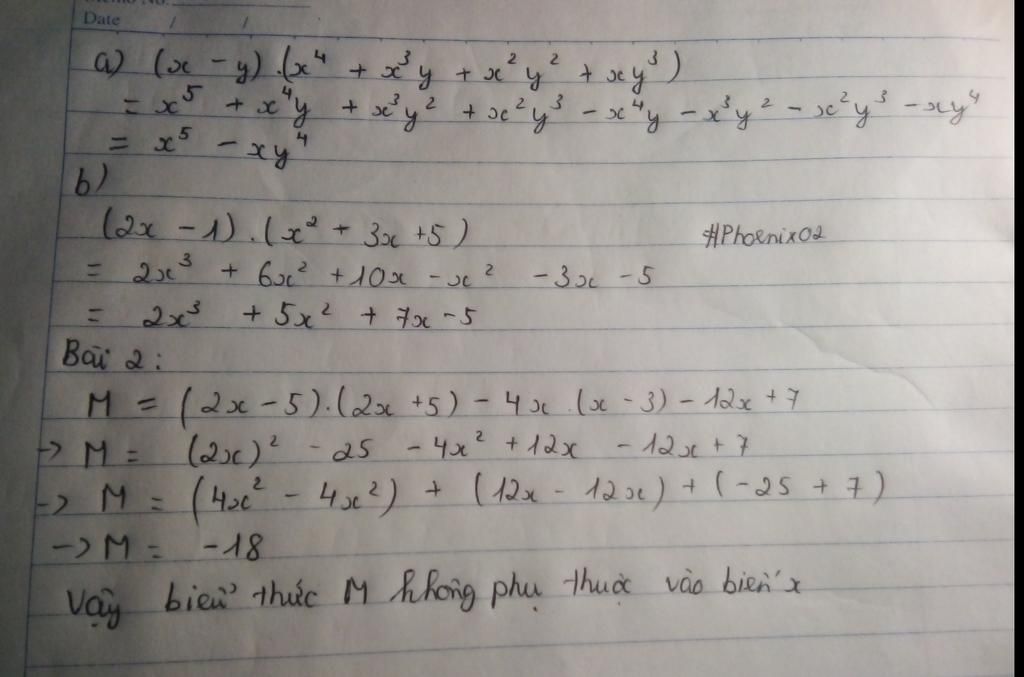 Date / /
a) (x - y).(x⁴ + x³y + x²y² + xy³)
= x⁵ + x⁴y + x³y² + x²y³ - x⁴y - x³y² - x²y³ - xy⁴
= x⁵ - xy⁴
b)
(2x - 1).(x² + 3x + 5)
#Phoenix02
= 2x³ + 6x² + 10x - x² - 3x - 5
= 2x³ + 5x² + 7x - 5
Bài 2:
M = (2x - 5).(2x + 5) - 4x.(x - 3) - 12x + 7
-> M = (2x)² - 25 - 4x² + 12x - 12x + 7
-> M = (4x² - 4x²) + (12x - 12x) + (-25 + 7)
-> M = -18
Vậy biểu thức M không phụ thuộc vào biến x